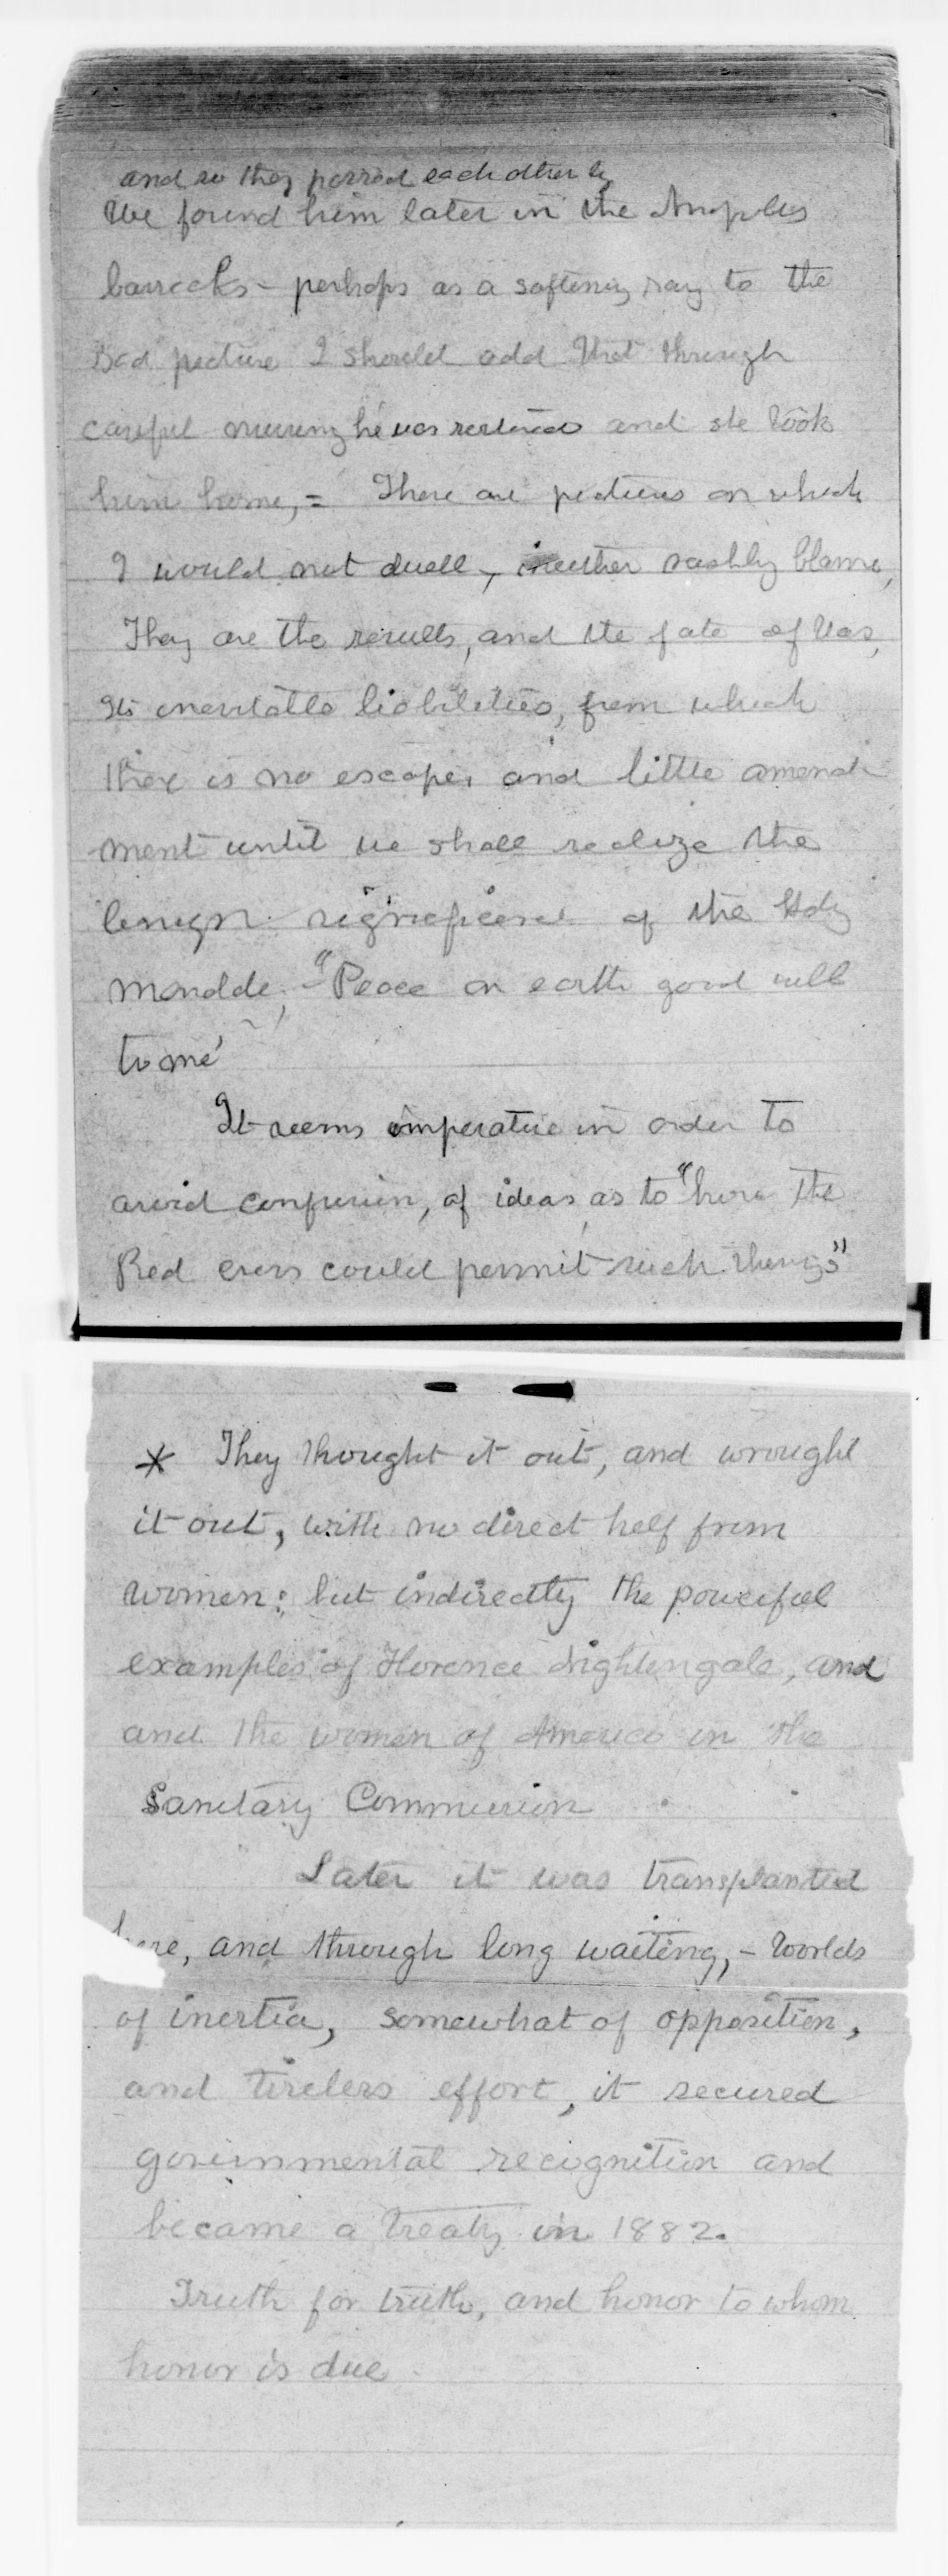 and so they passed each other by
We found him later in the Anapolis
barracks - perhaps as a softening ray to the
sad picture I should add that through
careful nursing he was restored and she took
him home, = There are pictures on which
I would not dwell, neither rashly blame,
They are the results, and the fate of War,
Its inevitable liabilities, from which
there is no escape, and little amend
ment until we shall realize the
benign significance of the Holy
mandate, "Peace on earth good will
to me'
It seems imperative in order to
avoid confusion, of ideas, as to "how the
Red cross could permit such things"
* They thought it out, and wrought
it out, with no direct help from
women; but indirectly the powerful
examples of Florence Nightengale, and
and the women of America in the
Sanitary Commission
Later it was transplanted
here, and through long waiting, - worlds
of inertia, somewhat of opposition,
and tireless effort, it secured
governmental recognition and
became a treaty in 1882.
Truth for truth, and honor to whom
honor is due